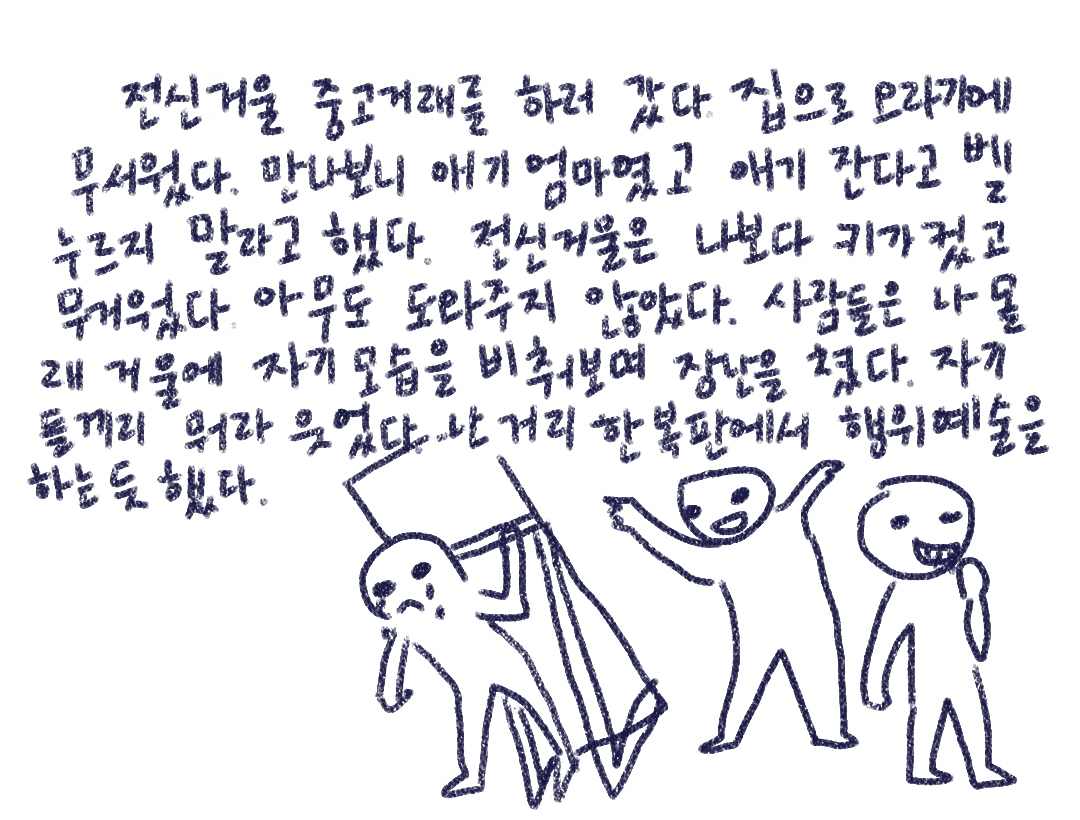 전신거울 중고거래를 하러 갔다 집으로 오라기에
무서웠다. 만나보니 애기 엄마였고 애기 잔다고 벨
누르지 말라고 했다. 전신거울은 나보다 키가 컸고
무거웠다. 아무도 도와주지 않았다. 사람들은 나 몰
래 거울에 자기 모습을 비춰보며 장난을 쳤다. 자기
들끼리 뭐라 웃었다. 난 거리 한복판에서 행위예술을
하는 듯 했다.